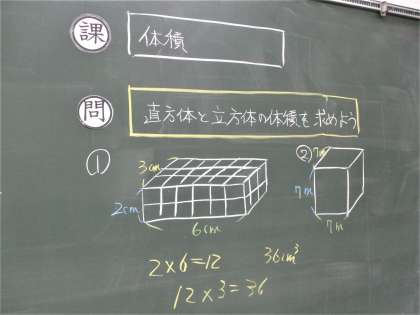 課
体積
問
直方体と立方体の体積を求めよう
①
3cm
2cm
6cm
②
7m
7m
7m
2×6=12
36cm³
12×3=36